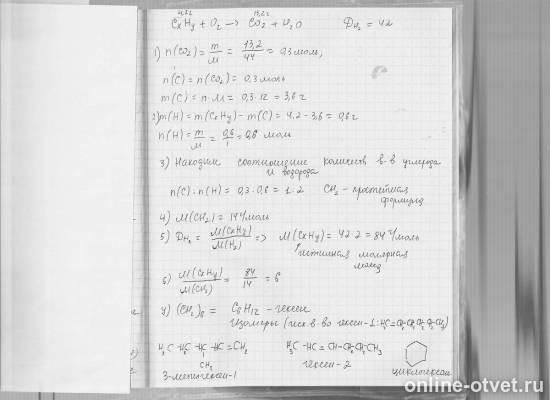 4,2г 13,2г
CxHy + O2 → CO2 + H2O D H2 = 42
1) n(CO2) = m/M = 13,2/44 = 0,3 моль,
n(C) = n(CO2) = 0,3 моль
m(C) = n·M = 0,3·12 = 3,6 г
2) m(H) = m(CxHy) - m(C) = 4.2 - 3,6 = 0,6 г
n(H) = m/M = 0,6/1 = 0,6 моль
3) Находим соотношение количеств в-в углерода
и водорода
n(C) : n(H) = 0,3 : 0,6 = 1:2 CH2 - простейшая
формула
4) M(CH2) = 14 г/моль
5) DH2 = M(CxHy)/M(H2) => M(CxHy) = 42·2 = 84 г/моль
истинная молярная
масса
6) M(CxHy)/M(CH2) = 84/14 = 6
7) (CH2)6 = C6H12 - гексен
Изомеры
H3C HC HC=CH2
CH3
3-метил -1
H3C-HC=CH-CH2CH2CH3
гексен-2
циклогексан
online-otvet.ru